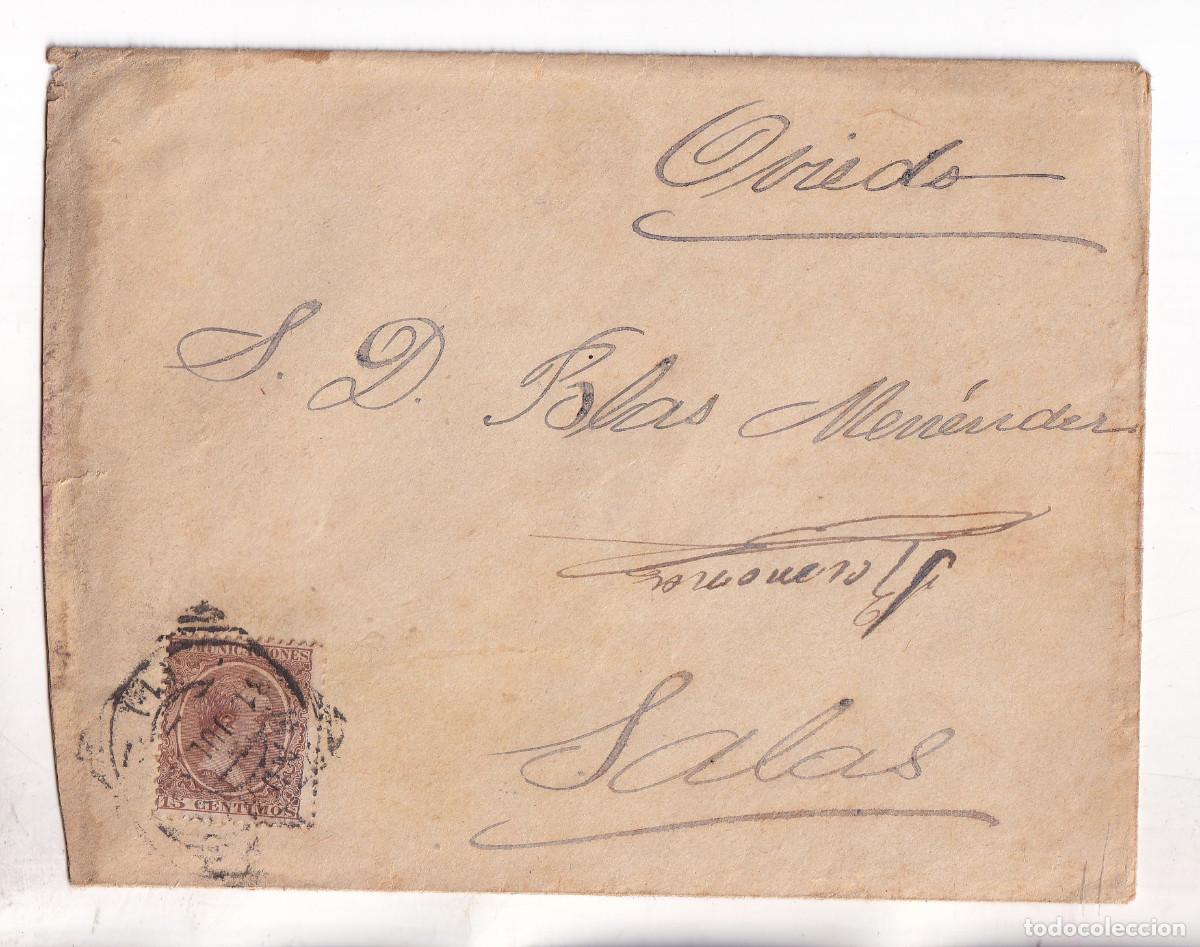 Oviedo
S. D. Blas Menéndez
Salas
COMUNICACIONES
15 CENTIMOS
todocoleccion